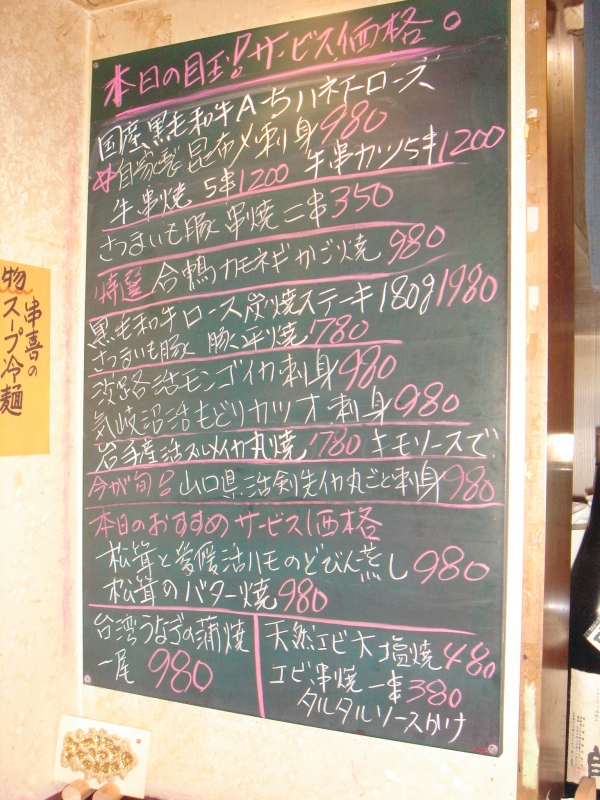 本日の目玉!サービス価格。
国産黒毛和牛A-5ハネシタロース
自家製昆布〆刺身980
牛串焼 5串1200 牛串カツ5串1200
さつまいも豚串焼二串350
特選 合鴨カモネギかご焼 980
黒毛和牛ロース炭焼ステーキ180g1980
さつまいも豚 豚平焼780
淡路活モンゴイカ刺身980
気岐沼活もどりカツオ刺身980
岩手産活スルメイカ丸焼780 キモソースで
今が旬!! 山口県活剣先イカ丸ごと刺身980
本日のおすすめサービス価格
松茸と愛媛活ハモのどびん蒸し980
松茸のバター焼980
台湾うなぎの蒲焼
一尾 980
天然エビ大塩焼480
エビ串焼一串380
タルタルソースかけ
串喜の
スープ冷麺